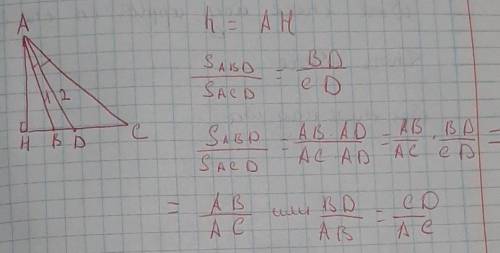 A
1 2
H B D C
h = AH
S_ABD / S_ACD = BD / CD
S_ABD / S_ACD = AB · AD / AC AD = AB / AC · BD / CD =
= AB / AC или BD / AB = CD / AC